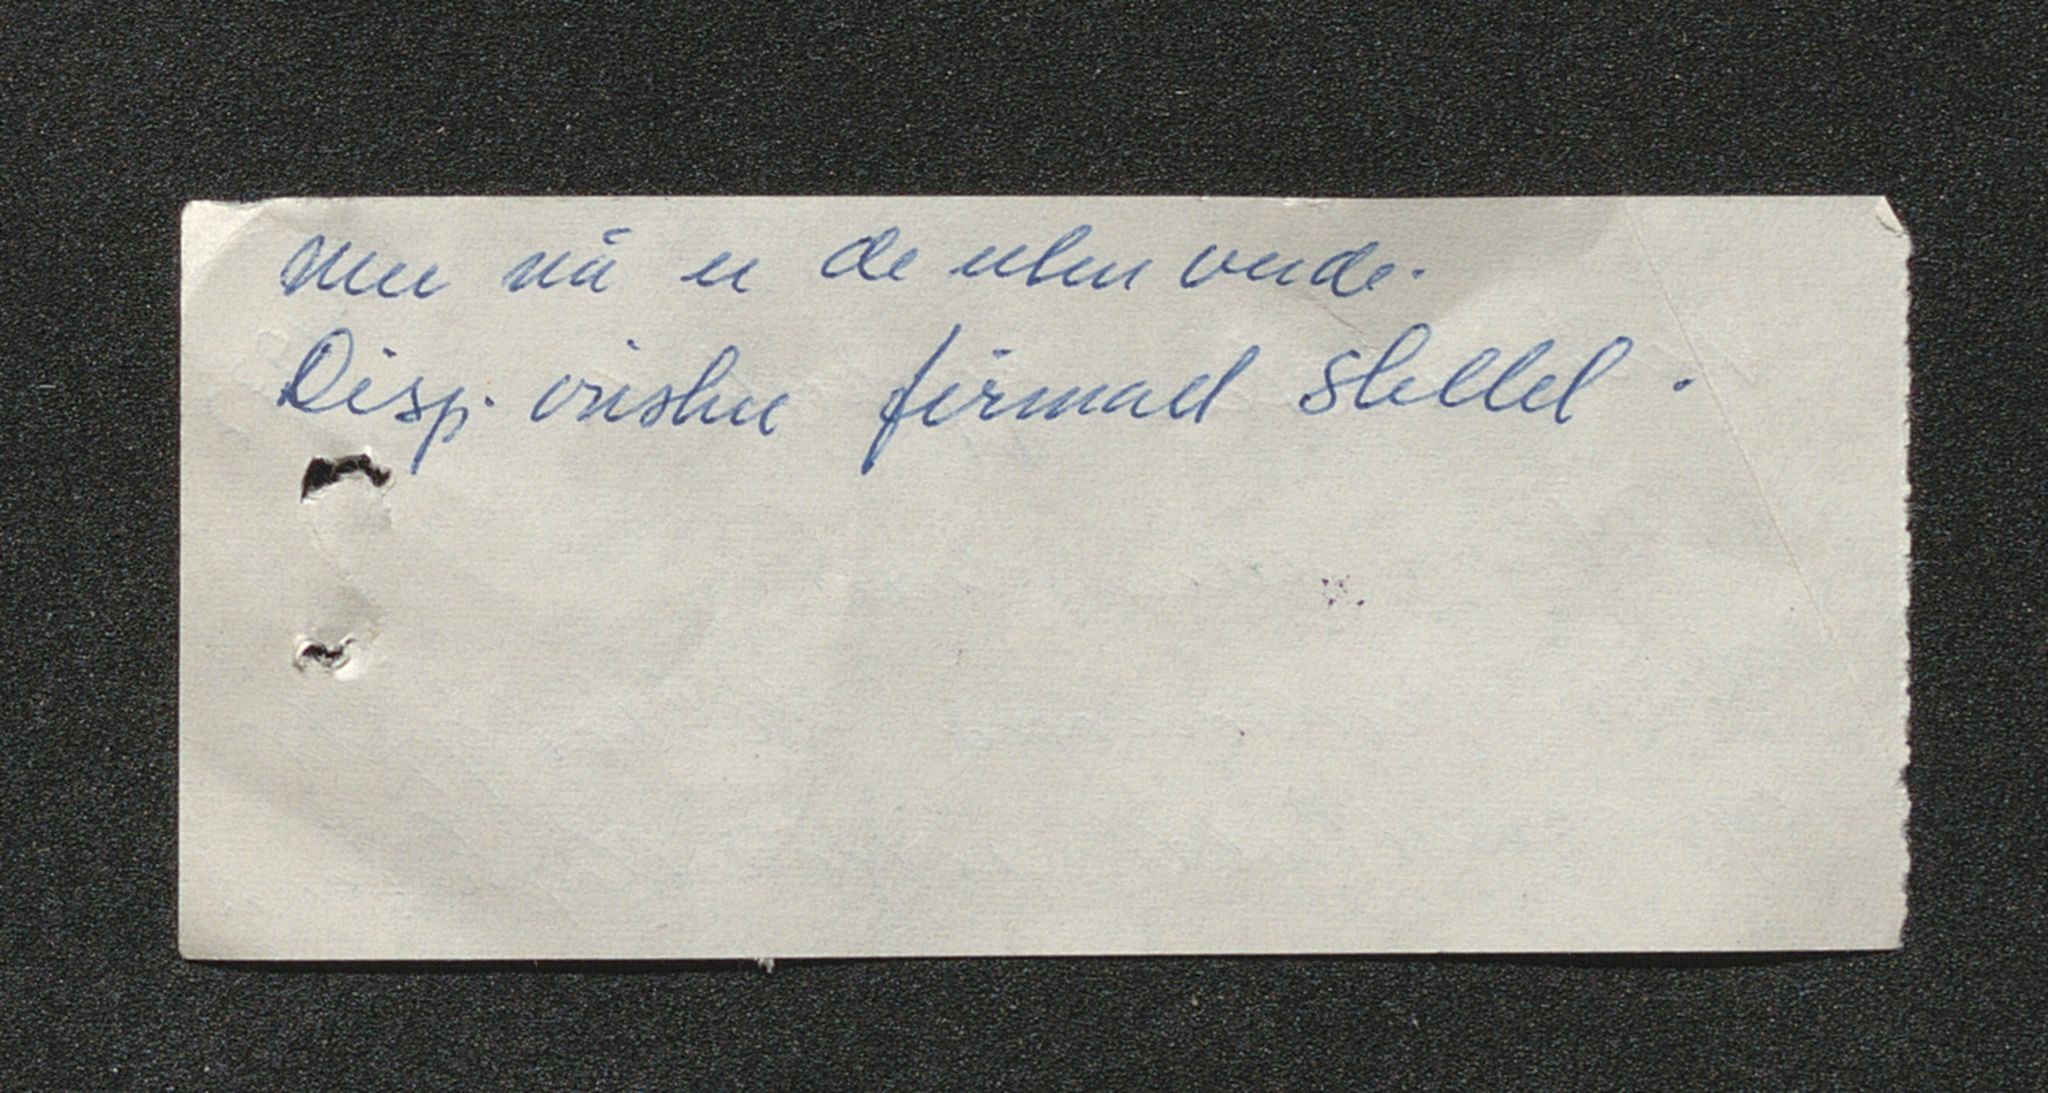 men nå er de uten verdi.
Disp. ønsker firmaet slettet.